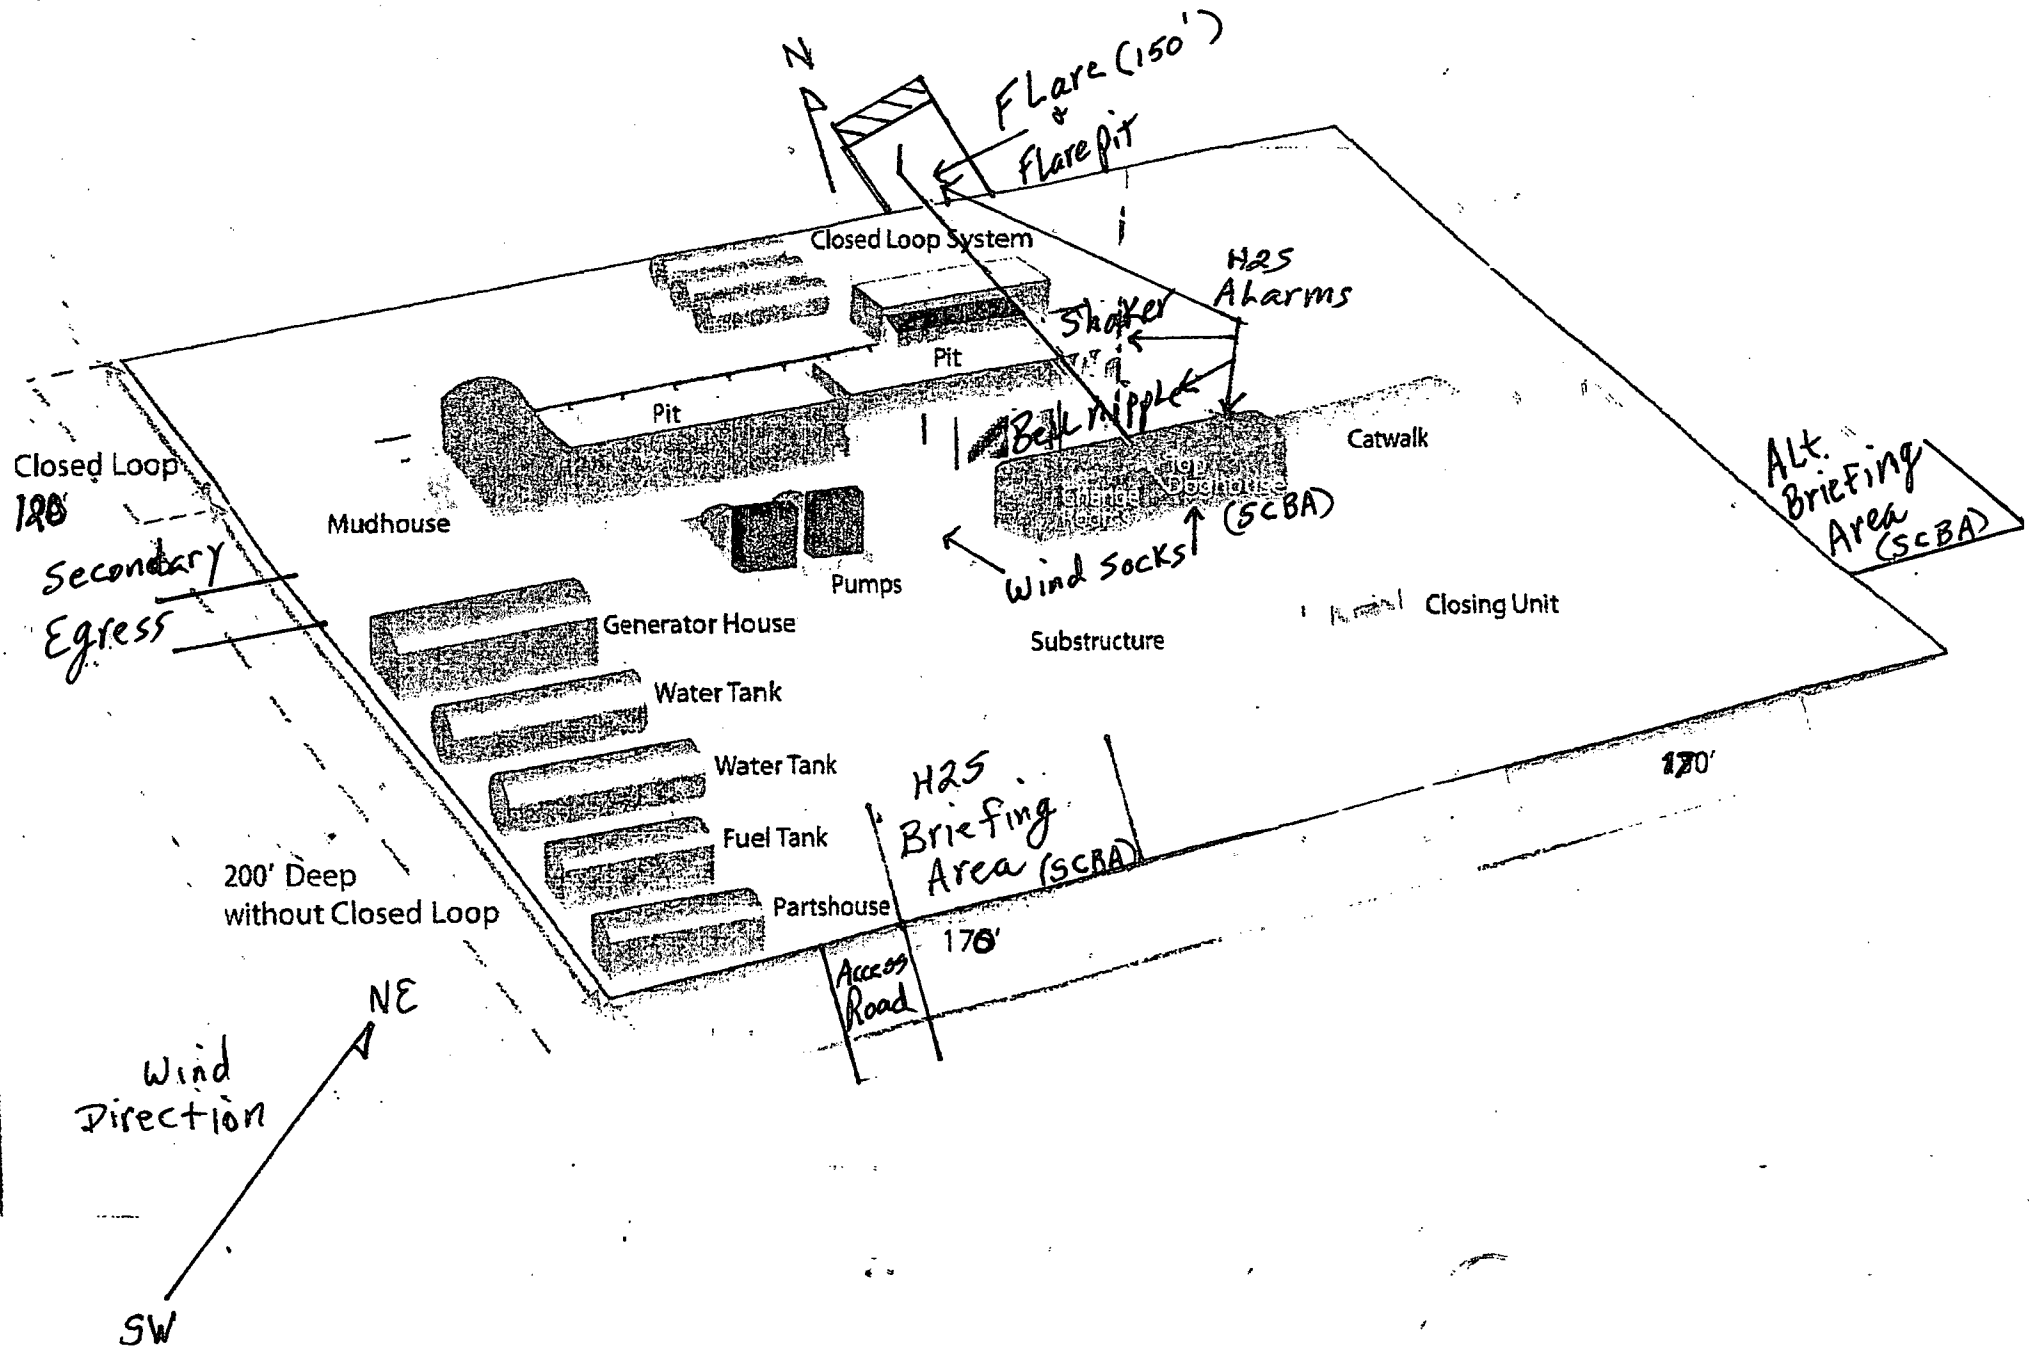 N
FLare (150')
&
Flare pit
Closed Loop System
H2S
ALarms
Shaker
Pit
Pit
Bell nipple
Catwalk
Top
Doghouse
(SCBA)
Change
ALt.
Briefing
Area
(SCBA)
Closed Loop
Mudhouse
Secondary
Egress
Pumps
Wind Socks
Closing Unit
Generator House
Substructure
Water Tank
Water Tank
H2S
Briefing
Area (SCBA)
Fuel Tank
200' Deep
without Closed Loop
Partshouse
Access
Road
NE
Wind
Direction
SW